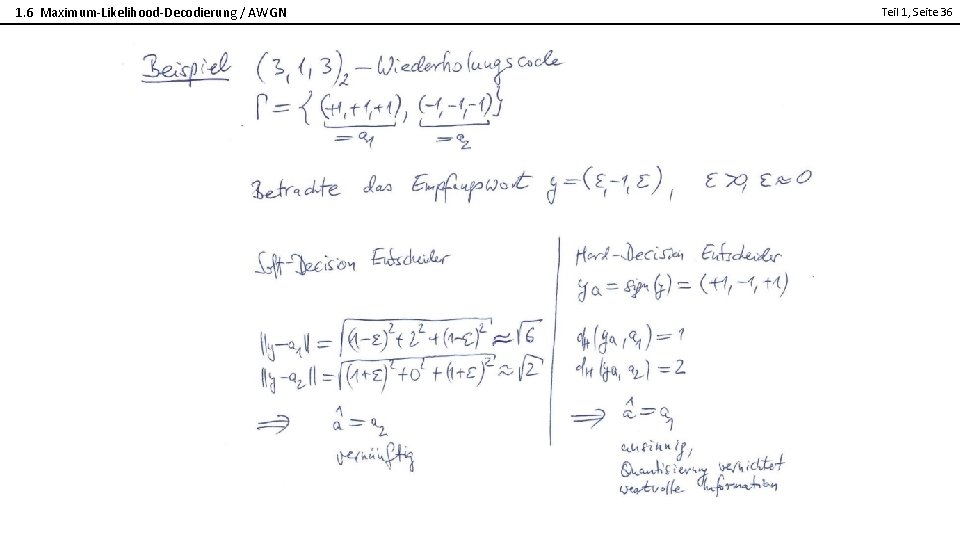 1.6 Maximum-Likelihood-Decodierung / AWGN
Teil 1, Seite 36
Beispiel (3,1,3)₂ – Wiederholungscode
Γ = { (+1,+1,+1), (-1,-1,-1) }
= a₁ = a₂
Betrachte das Empfangswort y = (ε,-1,ε), ε>0, ε≈0
Soft-Decision Entscheider
‖y-a₁‖ = √((1-ε)²+2²+(1-ε)²) ≈ √6
‖y-a₂‖ = √((1+ε)²+0²+(1+ε)²) ≈ √2
⟹ â = a₂
vernünftig
Hard-Decision Entscheider
ya = sign(y) = (+1,-1,+1)
dH(ya, a₁) = 1
dH(ya, a₂) = 2
⟹ â = a₁
unsinnig,
Quantisierung vernichtet
wertvolle Information